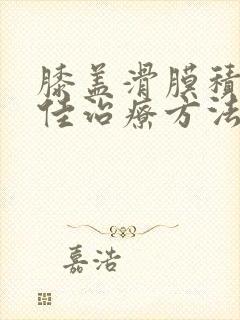 膝盖滑膜积
佳治疗方法
嘉浩